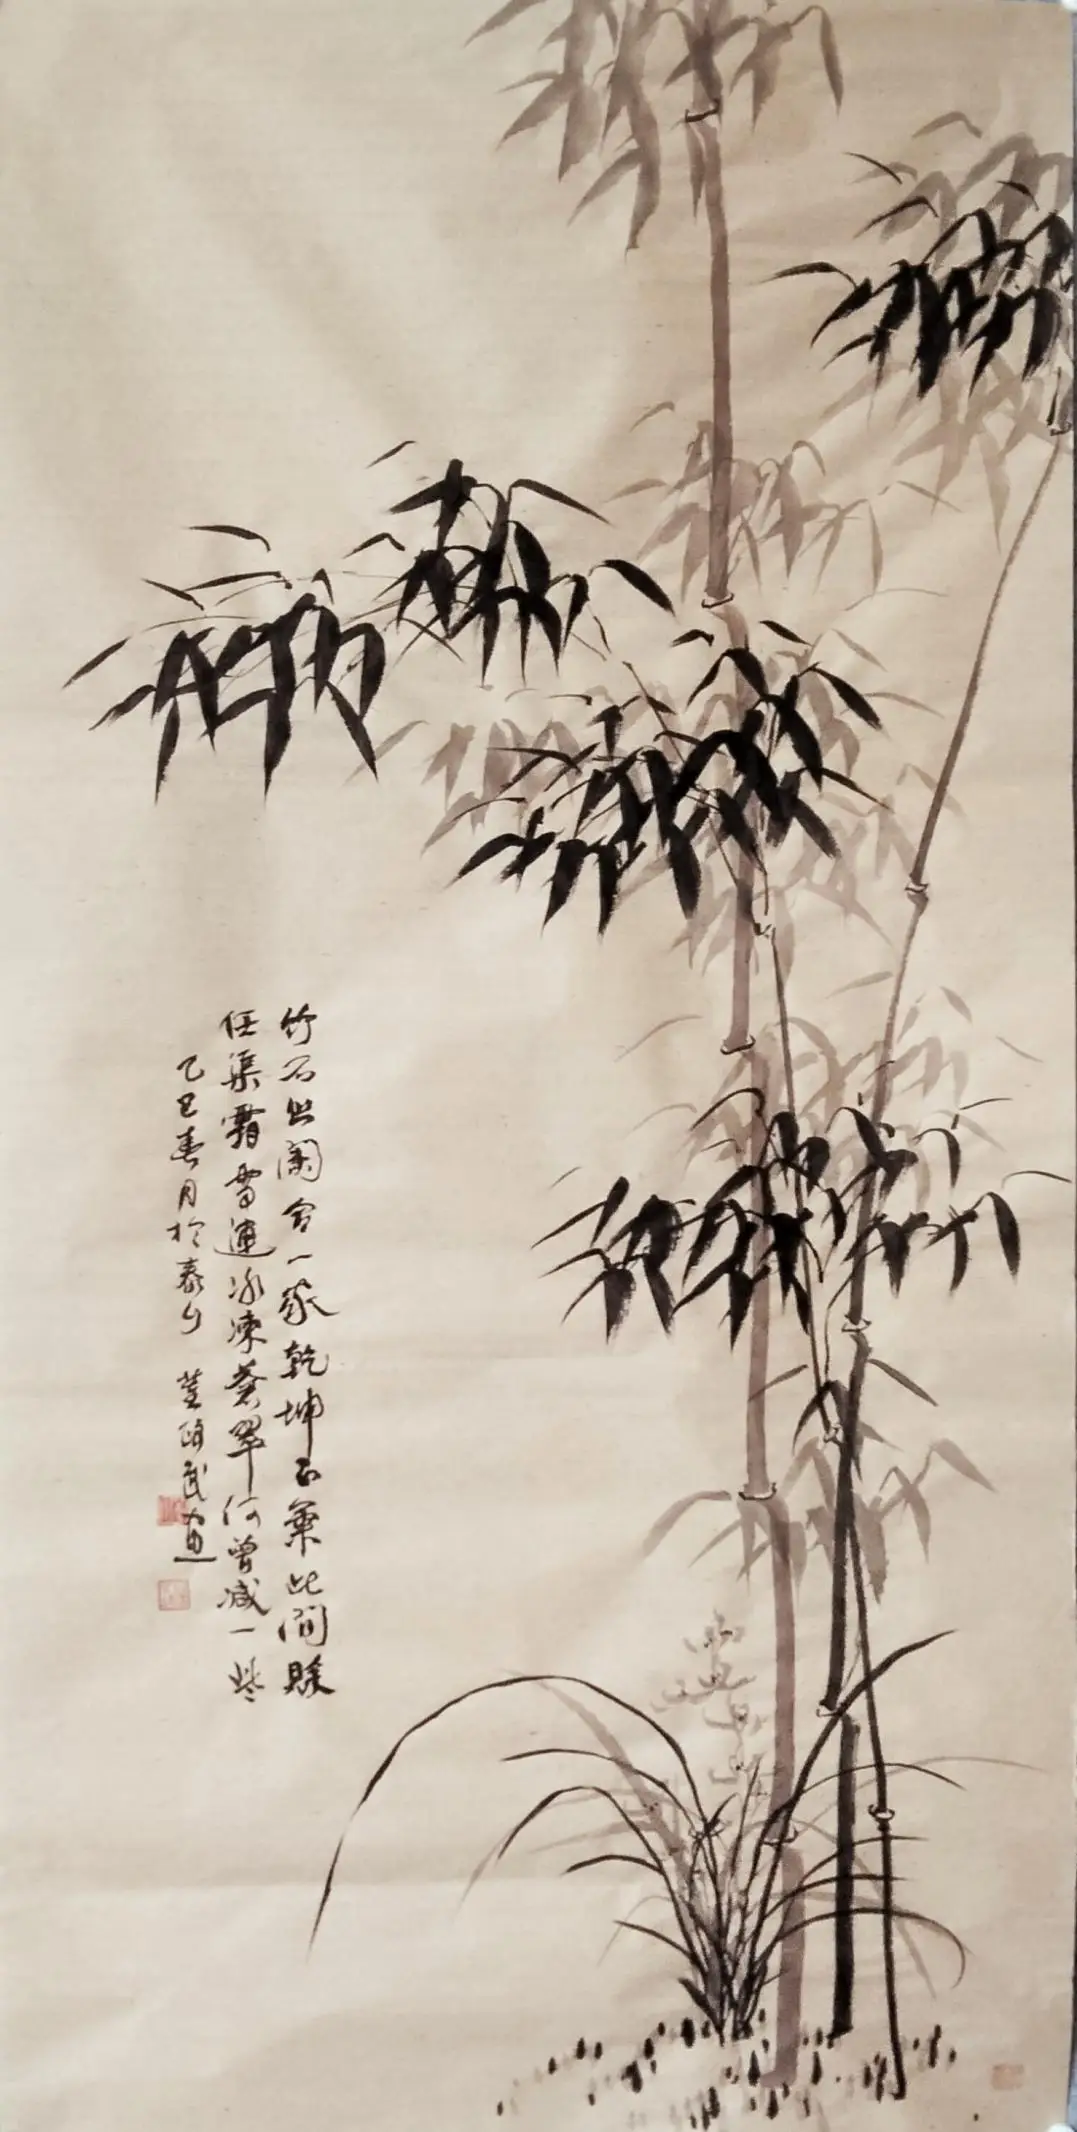 竹石幽蘭合一家乾坤正氣此間賒
任渠霜雪連冰凍蒼翠何曾減一些
乙巳春月於泰 董 武画